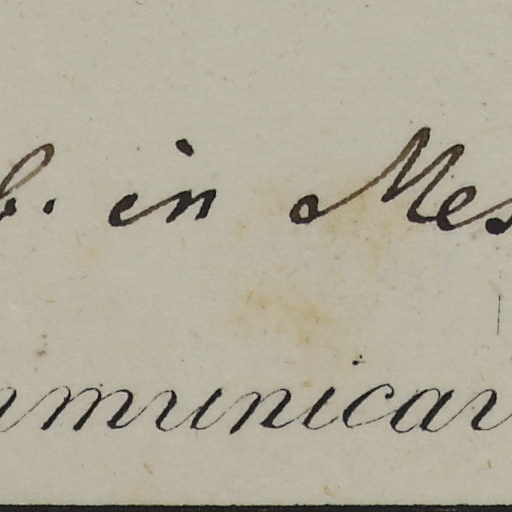 b. in Mes
mmunicav